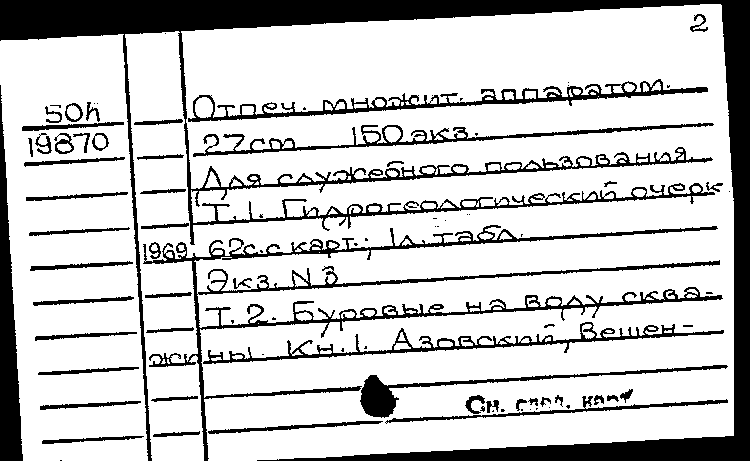 2
50h Отпеч. множит. аппаратом.
19870 27cm 150 экз.
Для служебного пользования.
Т.1. Гидрогеологический очерк
1969. 62с. с карт.; 1л. табл.
Экз. N 3
Т.2. Буровые на воду сква-
жины. Кн.1. Азовский, Вешен-
См. след. карт